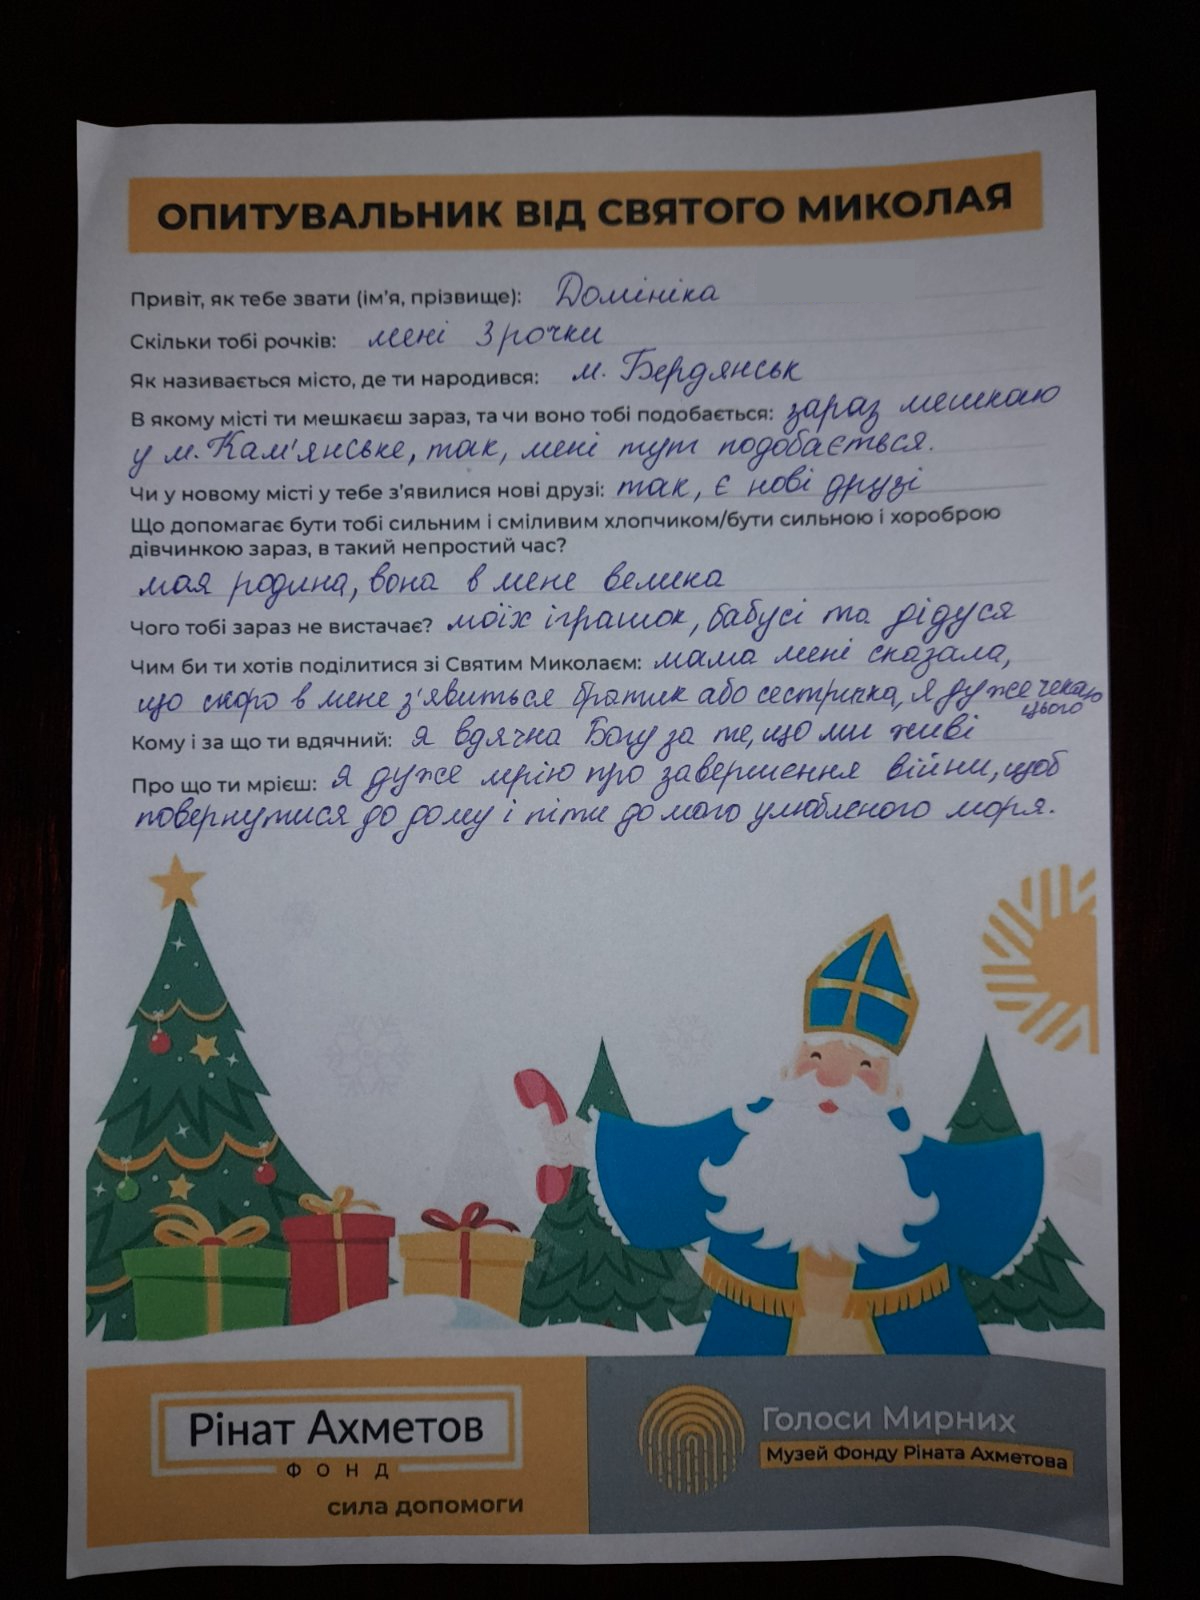 ОПИТУВАЛЬНИК ВІД СВЯТОГО МИКОЛАЯ
Привіт, як тебе звати (ім'я, прізвище): Домініка
Скільки тобі рочків: мені 3 рочки
Як називається місто, де ти народився: м. Бердянськ
В якому місті ти мешкаєш зараз, та чи воно тобі подобається: зараз мешкаю
у м. Кам'янське, так, мені тут подобається.
Чи у новому місті у тебе з'явилися нові друзі: так, є нові друзі
Що допомагає бути тобі сильним і сміливим хлопчиком/бути сильною і хороброю
дівчинкою зараз, в такий непростий час?
моя родина, вона в мене велика
Чого тобі зараз не вистачає? моїх іграшок, бабусі та дідуся
Чим би ти хотів поділитися зі Святим Миколаєм: мама мені сказала,
що скоро в мене з'явиться братик або сестричка, я дуже чекаю
цього
Кому і за що ти вдячний: я вдячна Богу за те, що ми живі
Про що ти мрієш: я дуже мрію про завершення війни, щоб
повернутися до дому і піти до мого улюбленого моря.
Рінат Ахметов
ФОНД
сила допомоги
Голоси Мирних
Музей Фонду Ріната Ахметова